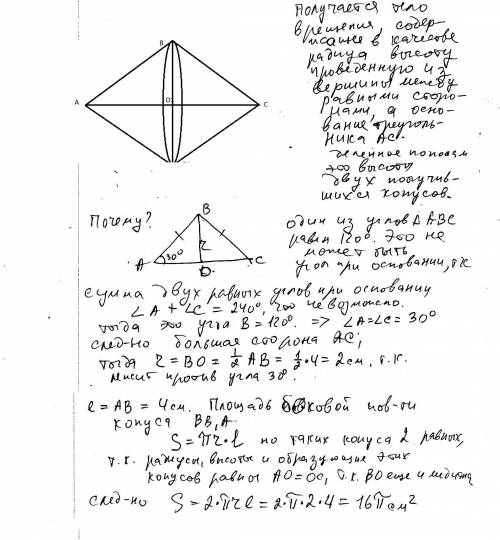 Получается тело
вращения, содер-
жащее в качестве
радиуса высоту
проведенную из
вершины между
равными сторо-
нами, а осно-
вание треуголь-
ника АС.
делённое пополам
это высоты
двух получив-
шихся конусов.
B
A
O
C
Почему?
B
A
30°
r
C
O
один из углов ΔАВС
равен 120°. Это не
может быть
угол при основании, т.к
сумма двух равных углов при основании
∠A + ∠C = 240°, что невозможно.
тогда это угол B = 120°. => ∠A=∠C= 30°
след-но большая сторона АС;
тогда r = BO = 1/2 AB = 1/2 · 4 = 2см, т.к.
лежит против угла 30°.
l = AB = 4см. Площадь боковой пов-ти
конуса BB₁A
S = πr·l но таких конуса 2 равных,
т.к. радиусы, высоты и образующие этих
конусов равны AO=OC, т.к. BO еще и медиана
след-но S = 2·πrl = 2·π·2·4 = 16π см²